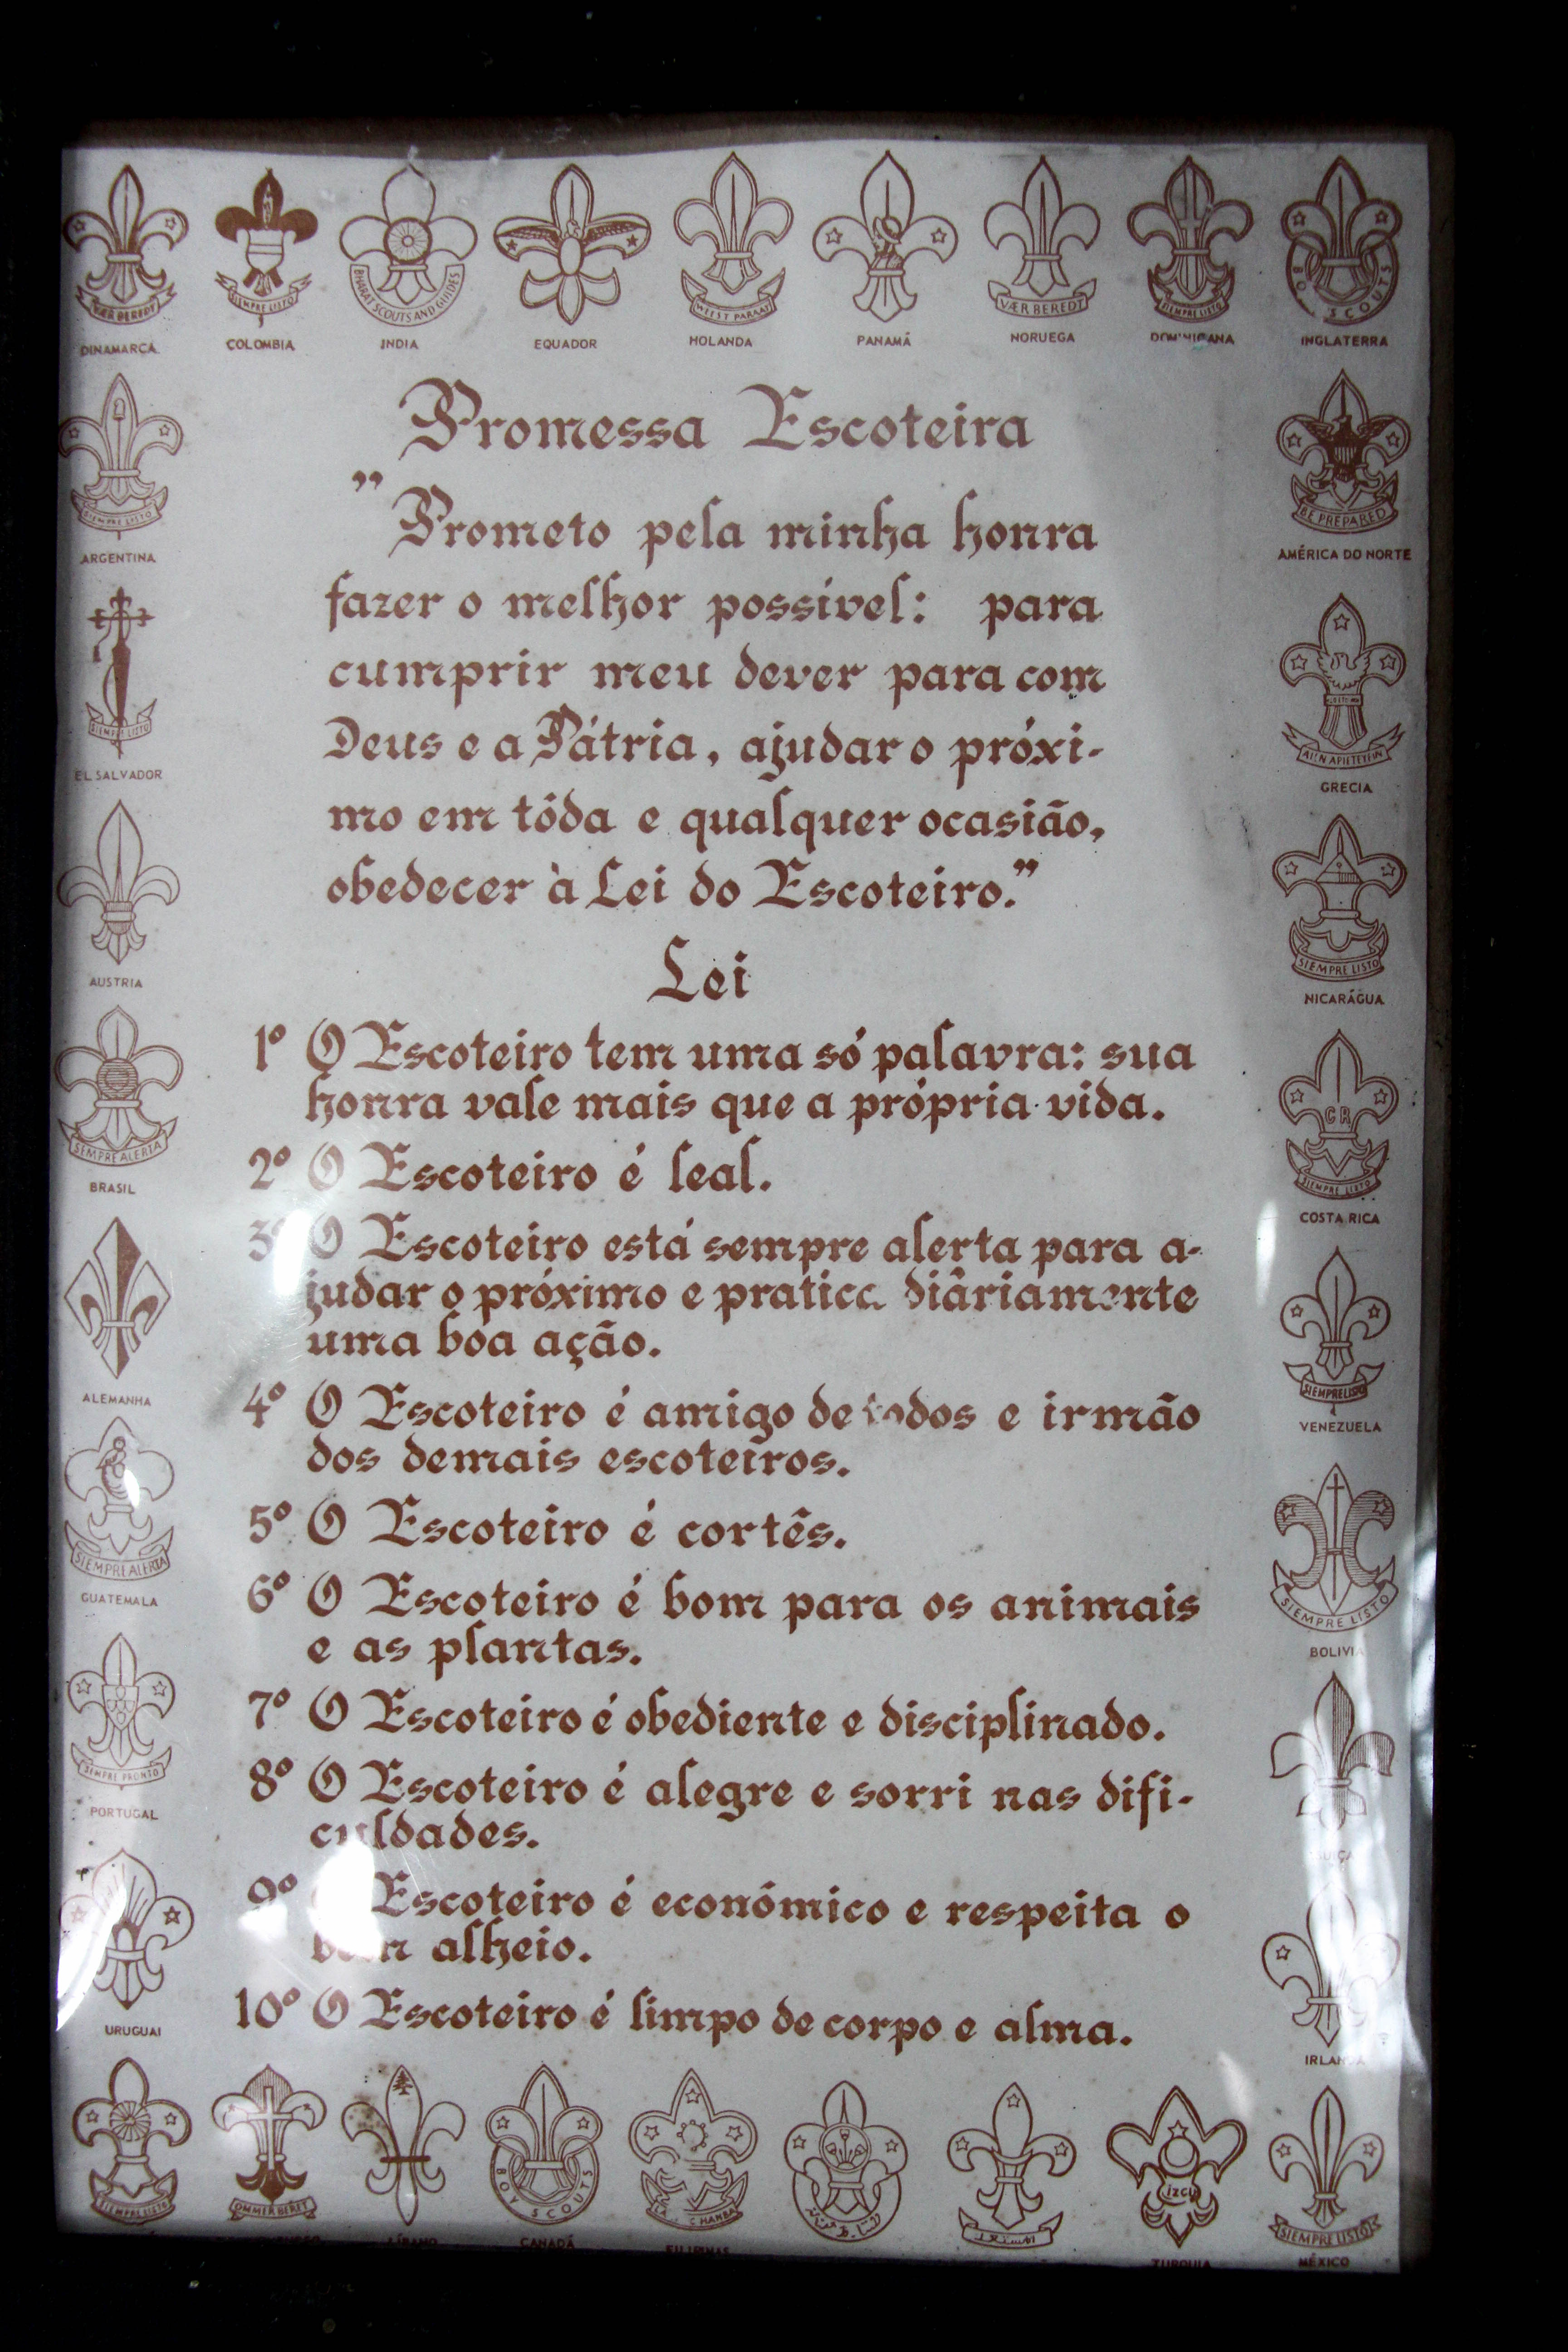 VÆR BEREDT
SIEMPRE LISTO
BHARAT SCOUTS AND GUIDES
WEEST PARAAT
VÆR BEREDT
SIEMPRE LISTO
BOY SCOUTS
DINAMARCA COLOMBIA INDIA EQUADOR HOLANDA PANAMÁ NORUEGA INGLATERRA
Promessa Escoteira
"Prometo pela minha honra
fazer o melhor possível: para
cumprir meu dever para com
Deus e a Pátria, ajudar o próxi-
mo em tôda e qualquer ocasião,
obedecer à Lei do Escoteiro."
Lei
1º O Escoteiro tem uma só palavra: sua
honra vale mais que a própria vida.
2º O Escoteiro é leal.
3º O Escoteiro está sempre alerta para a-
judar o próximo e pratica diàriamente
uma boa ação.
4º O Escoteiro é amigo de todos e irmão
dos demais escoteiros.
5º O Escoteiro é cortês.
6º O Escoteiro é bom para os animais
e as plantas.
7º O Escoteiro é obediente e disciplinado.
8º O Escoteiro é alegre e sorri nas difi-
culdades.
9º O Escoteiro é econômico e respeita o
bem alheio.
10º O Escoteiro é limpo de corpo e alma.
SIEMPRE LISTO
ARGENTINA
SIEMPRE LISTO
EL SALVADOR
AUSTRIA
SEMPRE ALERTA
BRASIL
ALEMANHA
SIEMPRE ALERTA
GUATEMALA
SEMPRE PRONTO
PORTUGAL
URUGUAI
BE PREPARED
AMÉRICA DO NORTE
GRECIA
SIEMPRE LISTO
NICARÁGUA
CR
SIEMPRE LISTO
COSTA RICA
SIEMPRE LISTO
VENEZUELA
SIEMPRE LISTO
BOLIVIA
IRLANDA
SIEMPRE LISTO
BOY SCOUTS
izci
SIEMPRE LISTO
LÍBANO CANADÁ FILIPINAS TURQUIA MÉXICO